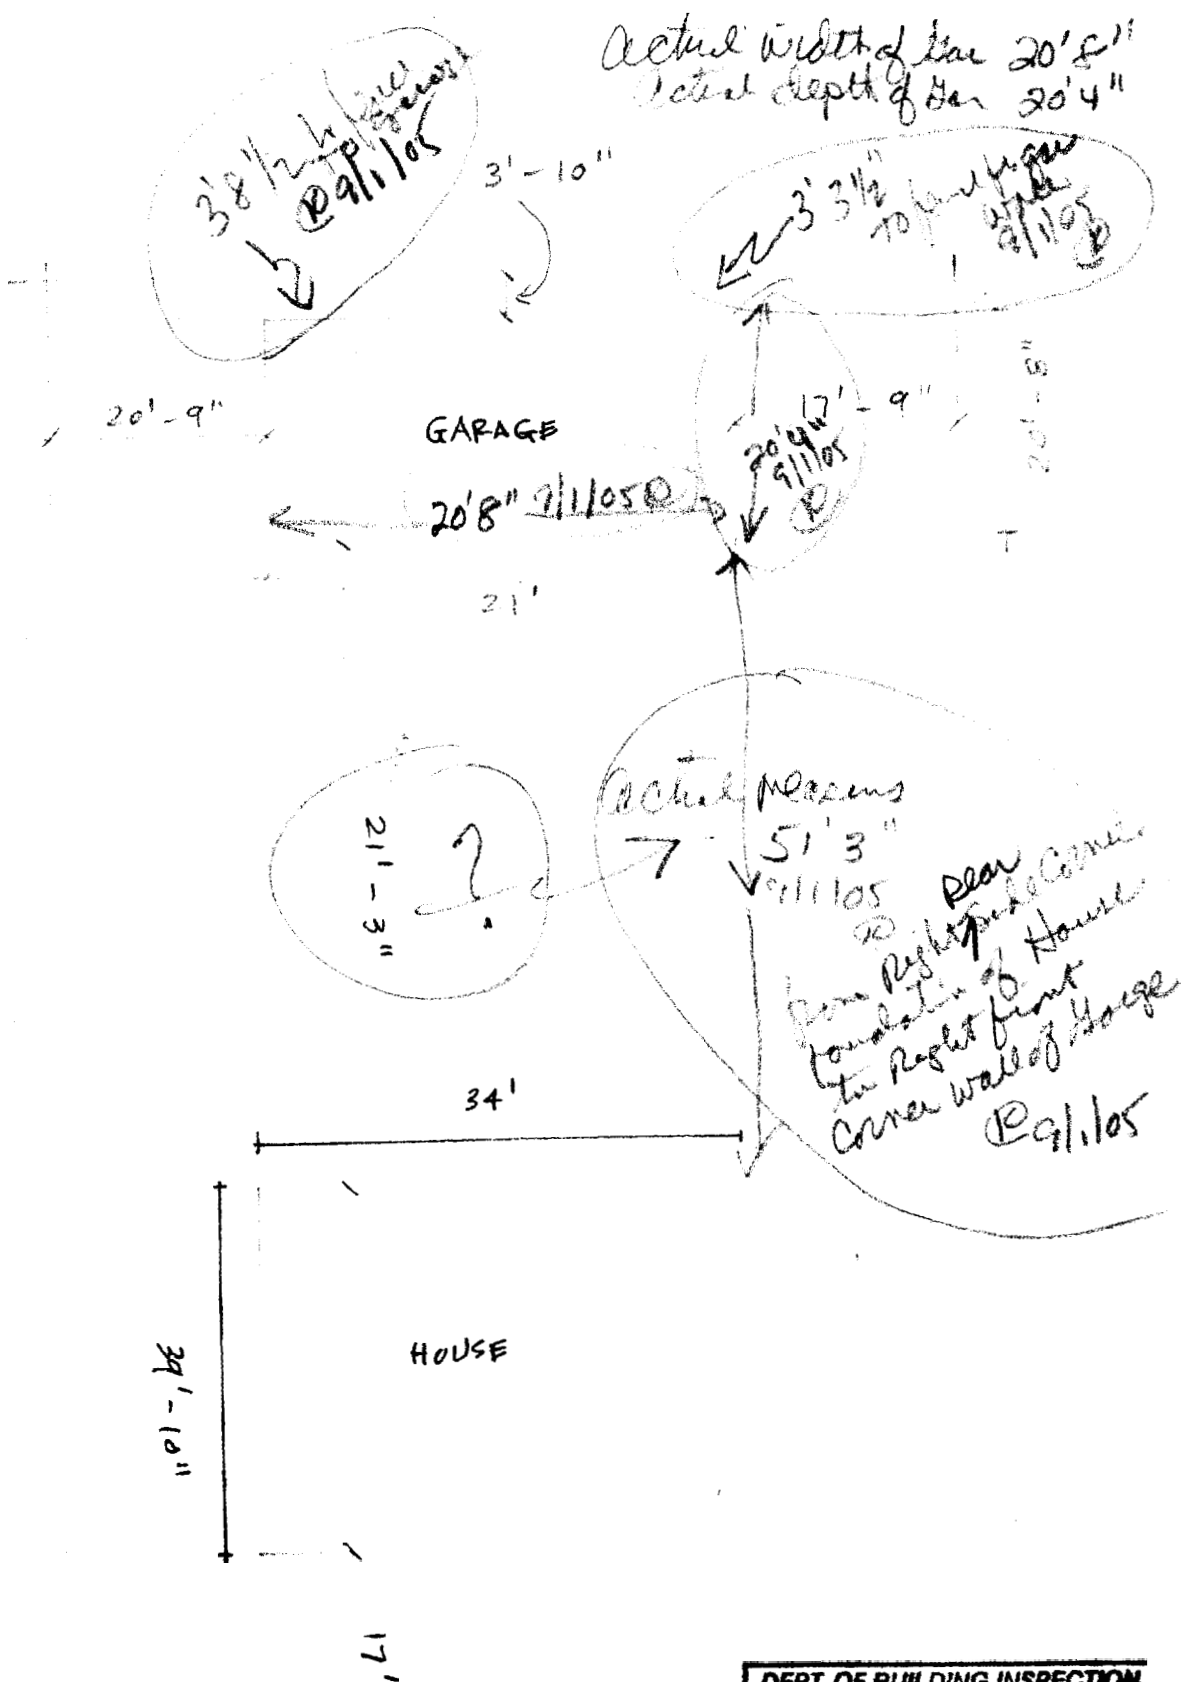 Actual width of Gar 20'8"
Actual depth of Gar 20'4"
3'8 1/2
to
9/1/05
3'-10"
3' 3 1/2"
To
9/1/05
20'-9"
GARAGE
17'-9"
20'4"
9/1/05
20'-8"
20'8" 9/1/05 R
21'
21'-3"
?
Actual means
51' 3"
9/1/05
R
Rear
from Right Side Corner
foundation of House
to Right front
Corner wall of Garge
R 9/1/05
34'
HOUSE
39'-10"
17'
DEPT. OF BUILDING INSPECTION